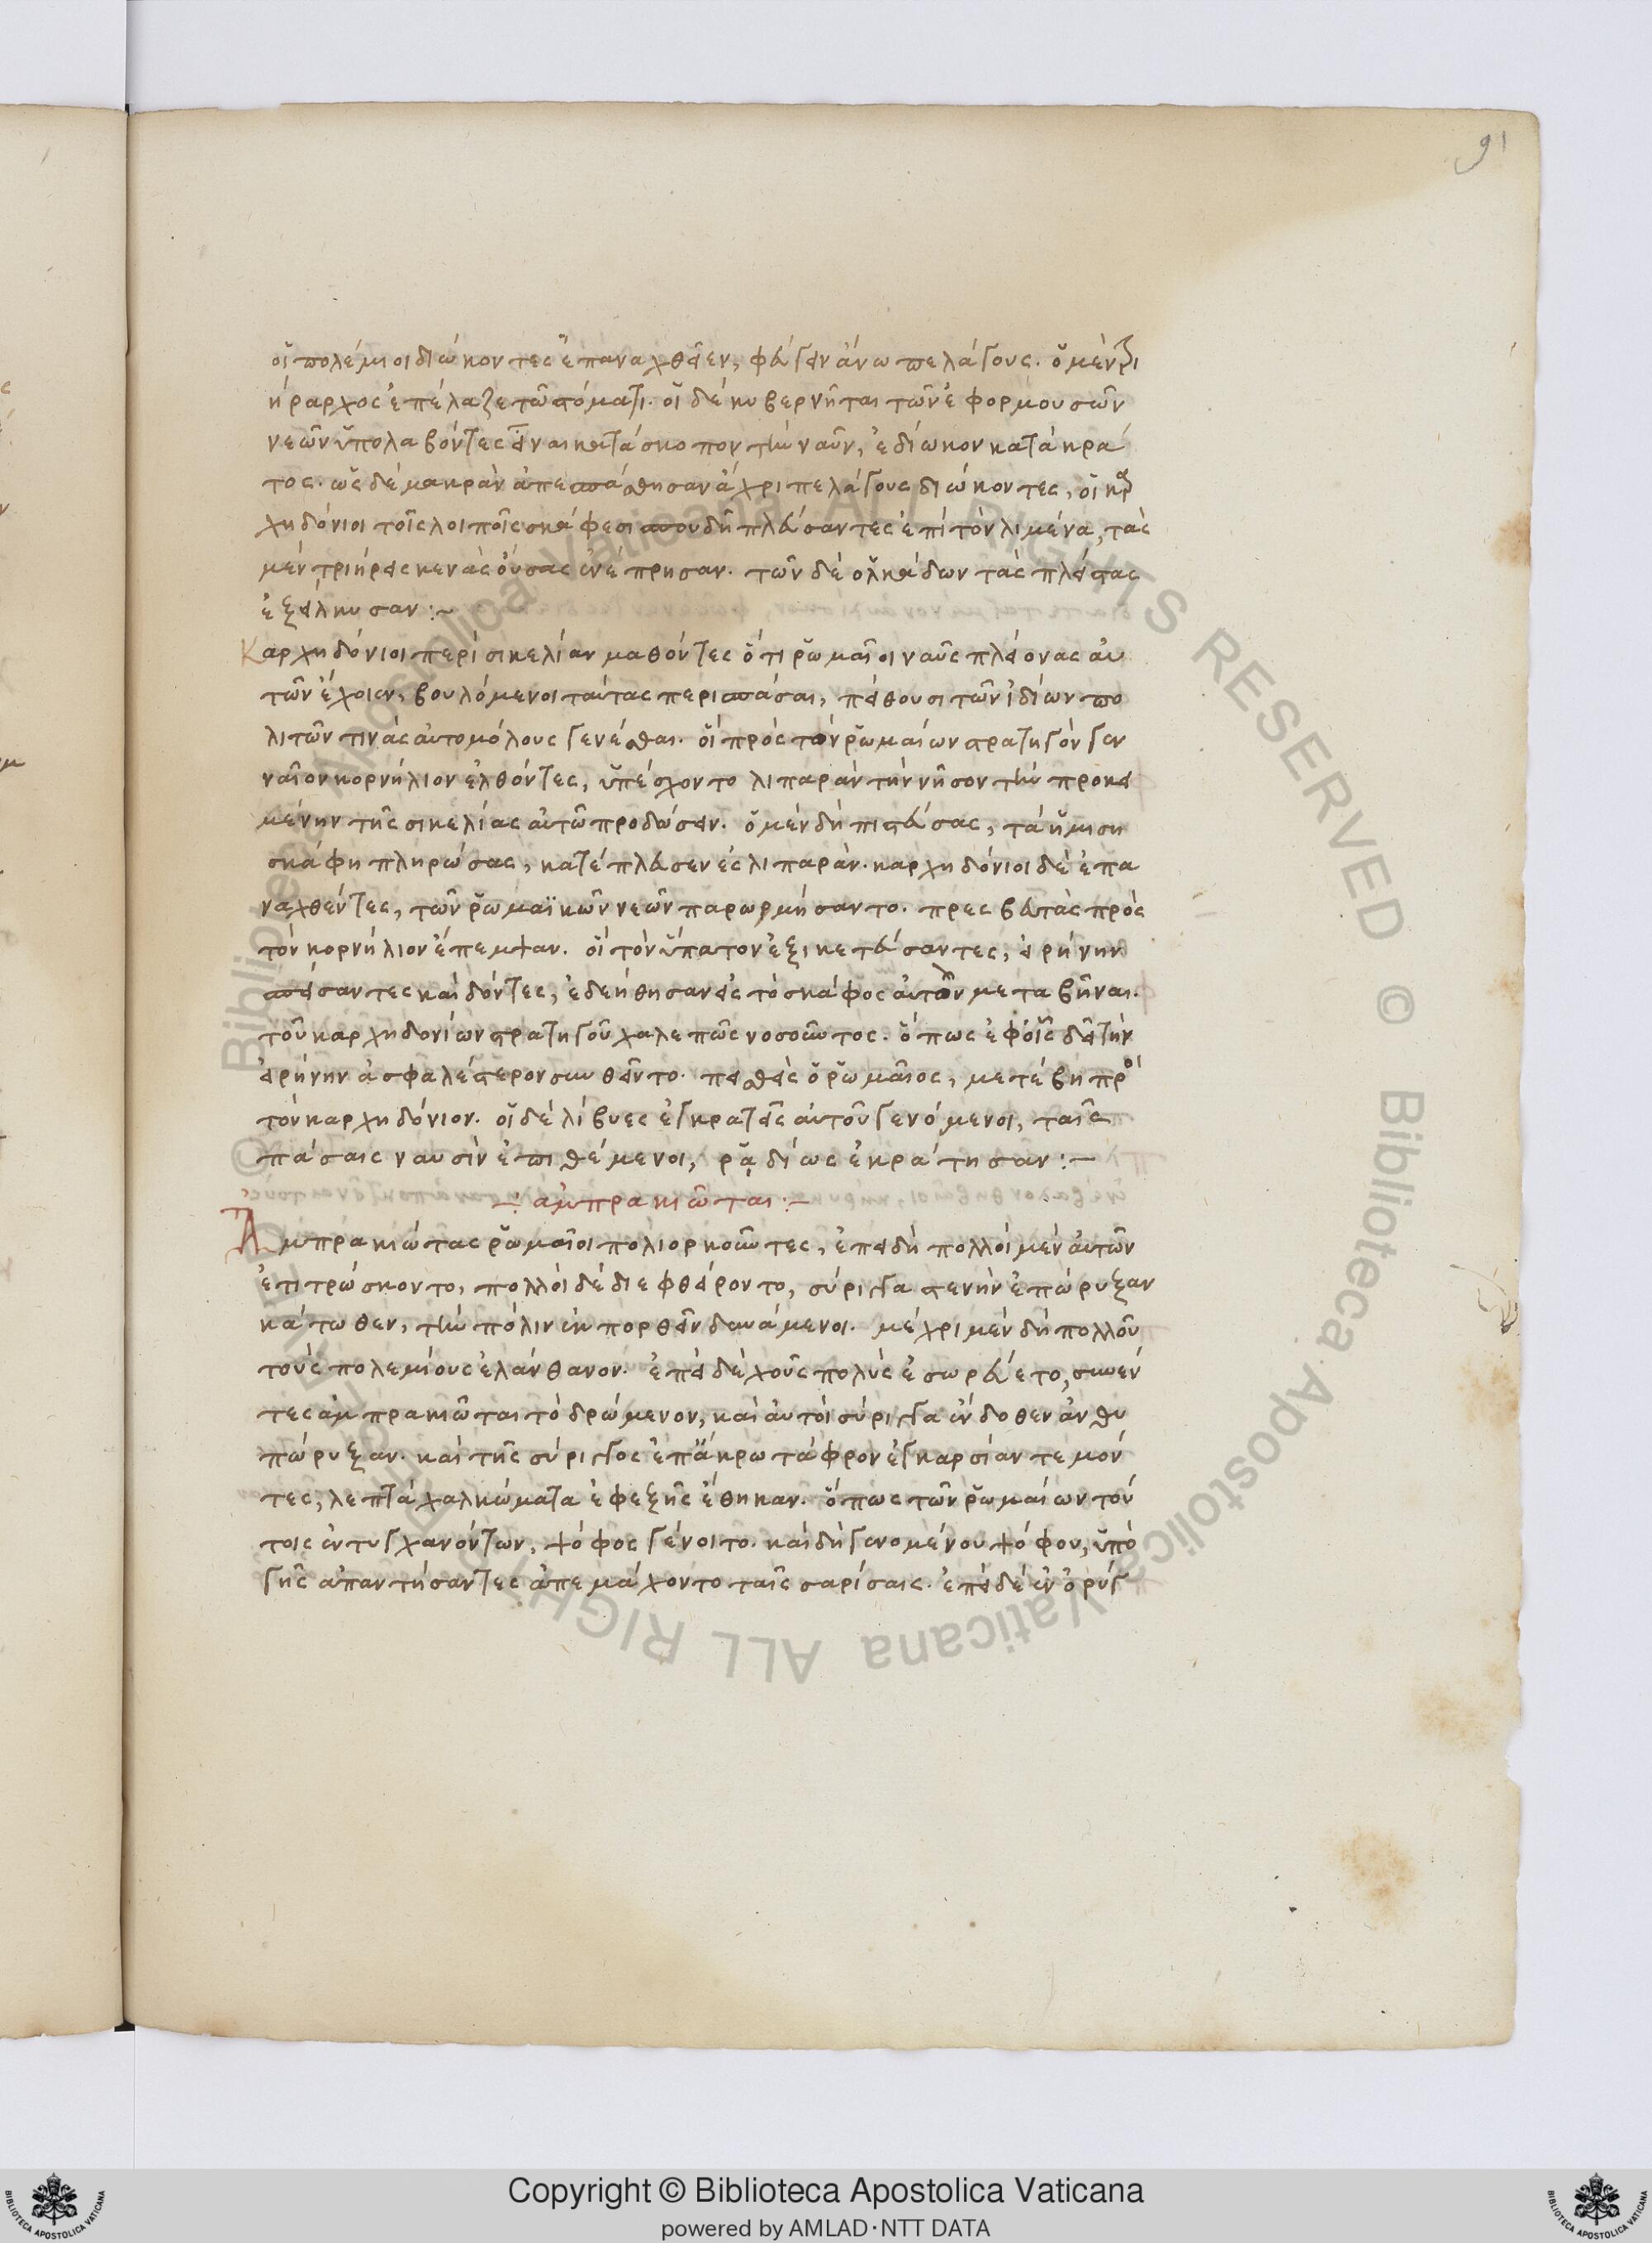 91
οἱ πολέμιοι διώκοντες ἐπαναχθεῖεν, φεύγειν ἄνω πελάγους. ὁ μὲν τρι
ήραρχος ἐπέλαζε τῶ στόματι. οἱ δὲ κυβερνῆται τῶν ἐφορμουσῶν
νεῶν ὑπολαβόντες εἶναι κατάσκοπον τὴν ναῦν, ἐδίωκον κατὰ κρά
τος. ὡς δὲ μακρὰν ἀπεσπάσθησαν ἄχρι πελάγους διώκοντες, οἱ καρ
χηδόνιοι τοῖς λοιποῖς σκάφεσι σπουδῆ πλεύσαντες ἐπὶ τὸν λιμένα, τὰς
μὲν τριήρεις κενὰς οὔσας ἐνέπρησαν. τῶν δὲ ὁλκάδων τὰς πλείστας
ἐξείλκυσαν :~
Καρχηδόνιοι περὶ σικελίαν μαθόντες ὅτι ῥωμαῖοι ναῦς πλείονας αὐ
τῶν ἔχοιεν, βουλόμενοι ταύτας περισπάσαι, πείθουσι τῶν ἰδίων πο
λιτῶν τινὰς αὐτομόλους γενέσθαι. οἳ πρὸς τὸν ῥωμαίων στρατηγὸν γεν
ναῖον κορνήλιον ἐλθόντες, ὑπέσχοντο λιπαρὰν τὴν νῆσον τὴν προκει
μένην τῆς σικελίας αὐτῶ προδώσειν. ὁ μὲν δὴ πιστεύσας, τὰ ἥμιση
σκάφη πληρώσας, κατέπλευσεν ἐς λιπαράν. καρχηδόνιοι δὲ ἐπα
ναχθέντες, τῶν ῥωμαϊκῶν νεῶν παρωρμήσαντο. πρεσβευτὰς πρὸς
τὸν κορνήλιον ἔπεμψαν. οἳ τὸν ὕπατον ἐξικετεύσαντες, εἰρήνην
σπείσαντες καὶ δόντες, ἐδεήθησαν εἰς τὸ σκάφος αὐτῶν μεταβῆναι.
τοῦ καρχηδονίων στρατηγοῦ χαλεπῶς νοσοῦντος. ὅπως ἐφ' οἷς δεῖ τὴν
εἰρήνην ἀσφαλέστερον συνθεῖντο. πεισθεὶς ὁ ῥωμαῖος, μετέβη πρὸς
τὸν καρχηδόνιον. οἱ δὲ λίβυες ἐγκρατεῖς αὐτοῦ γενόμενοι, ταῖς
πάσαις ναυσὶν ἐπιθέμενοι, ῥᾳδίως ἐκράτησαν :~
~: αμπρακιῶται :~
Ἀμπρακιώτας ῥωμαῖοι πολιορκοῦντες, ἐπειδὴ πολλοὶ μὲν αὐτῶν
ἐτιτρώσκοντο, πολλοὶ δὲ διεφθείροντο, σύριγγα στενὴν ἐπώρυξαν
κάτωθεν, τὴν πόλιν ἐκπορθεῖν δυνάμενοι. μέχρι μὲν δὴ πολλοῦ
τοὺς πολεμίους ἐλάνθανον. ἐπεὶ δὲ χοῦς πολὺς ἐσωρεύετο, συνέν
τες ἀμπρακιῶται τὸ δρώμενον, καὶ αὐτοὶ σύριγγα ἔνδοθεν ἀνθυ
πώρυξαν. καὶ τῆς σύριγγος ἐπ' ἄκρω τάφρον ἐγκαρσίαν τεμόν
τες, λεπτὰ χαλκώματα ἐφεξῆς ἔθηκαν. ὅπως τῶν ῥωμαίων τού
τοις ἐντυγχανόντων, ψόφος γένοιτο. καὶ δὴ γενομένου ψόφου, ὑπὸ
γῆς ἀπαντήσαντες ἀπεμάχοντο ταῖς σαρίσαις. ἐπεὶ δὲ ἐν ὀρύγ
Copyright © Biblioteca Apostolica Vaticana
powered by AMLAD·NTT DATA